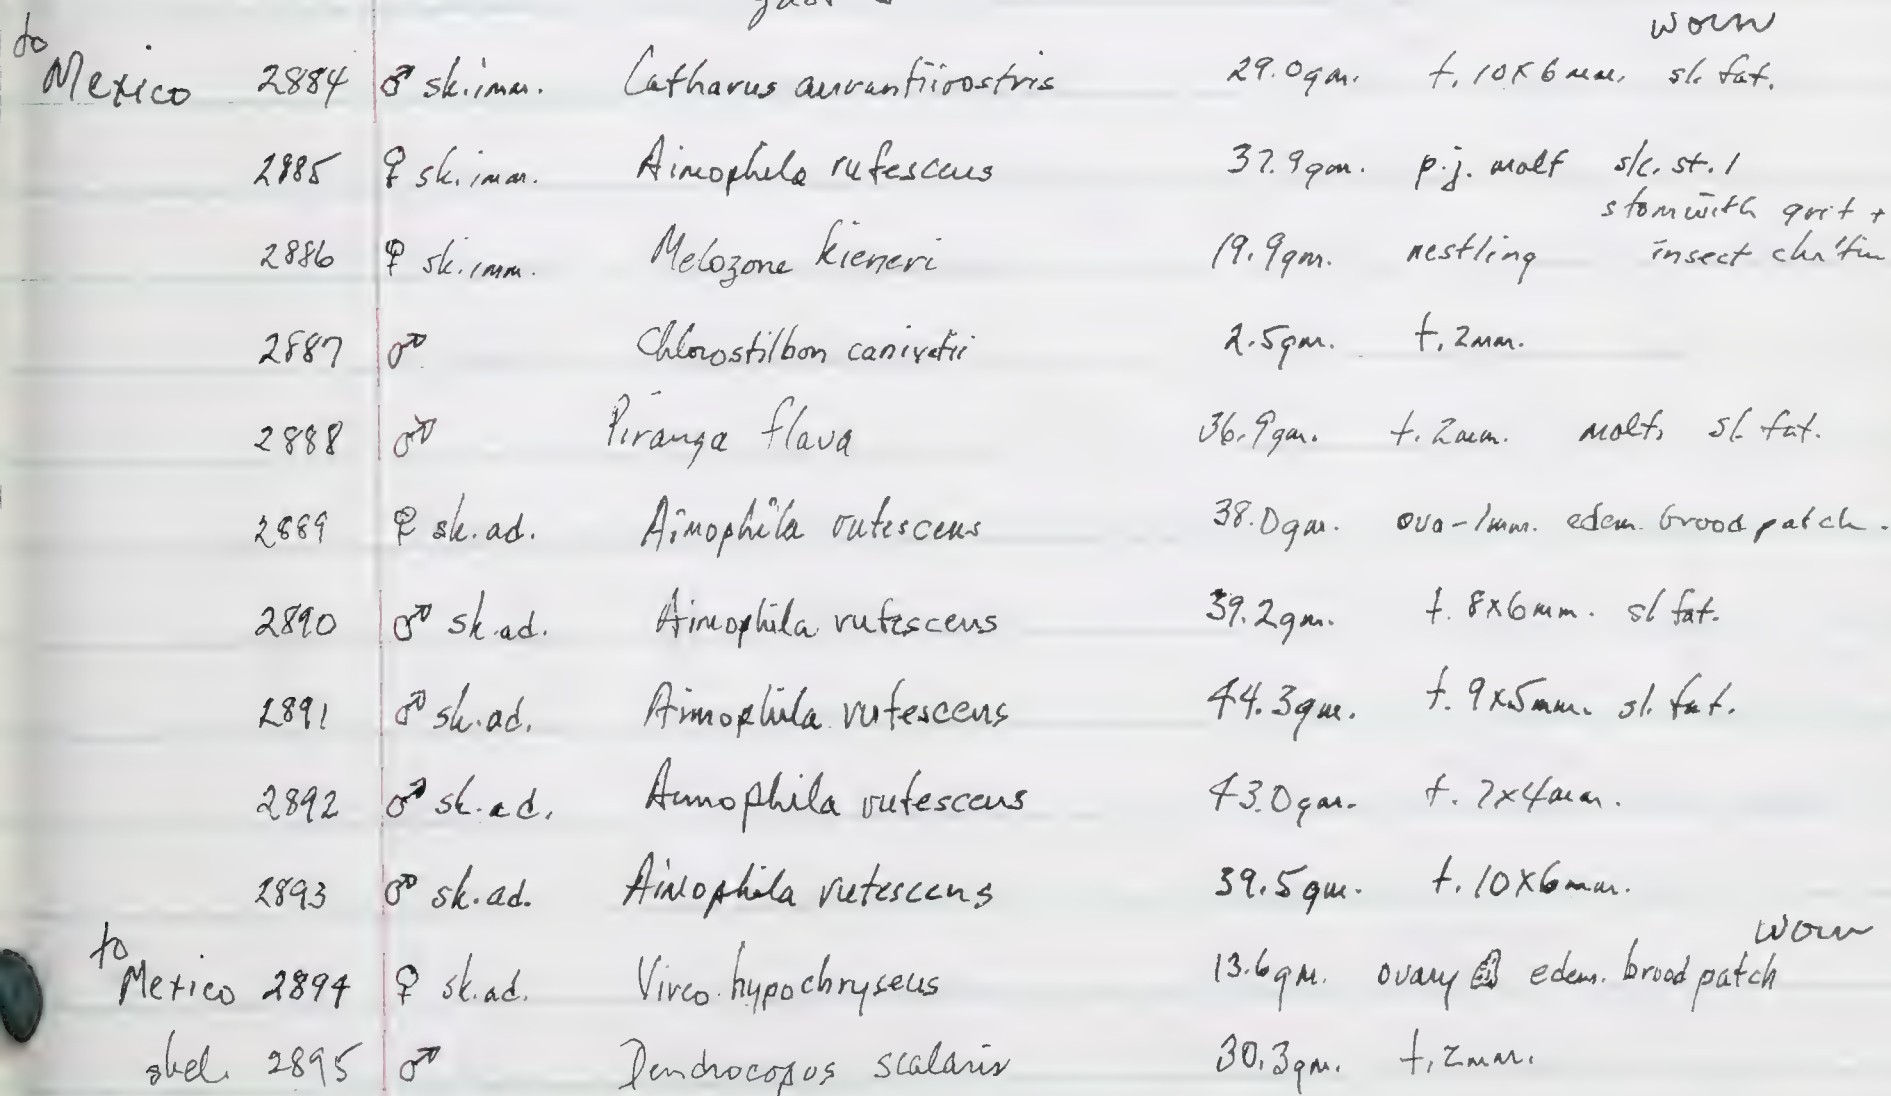 worn
to Mexico 2884 ♂ sk.imm. Catharus aurantiirostris 29.0gm. t. 10x6mm. sl. fat.
2885 ♀ sk.imm. Aimophila rufescens 37.9gm. p.j. molt sk. st. 1
stom with grit +
2886 ♀ sk.imm. Melozone kieneri 19.9gm. nestling insect chitin
2887 ♂ Chlorostilbon canivetii 2.5gm. t. 2mm.
2888 ♂ Piranga flava 36.9gm. t. 2mm. molt, sl. fat.
2889 ♀ sk.ad. Aimophila rufescens 38.0gm. ova-1mm. edem. brood patch.
2890 ♂ sk.ad. Aimophila rufescens 39.2gm. t. 8x6mm. sl fat.
2891 ♂ sk.ad. Aimophila rufescens 44.3gm. t. 9x5mm. sl. fat.
2892 ♂ sk.ad. Aimophila rufescens 43.0gm. t. 7x4mm.
2893 ♂ sk.ad. Aimophila rufescens 39.5gm. t. 10x6mm.
worn
to Mexico 2894 ♀ sk.ad. Vireo hypochryseus 13.6gm. ovary edem. brood patch
skel. 2895 ♂ Dendrocopus scalaris 30.3gm. t. 2mm.